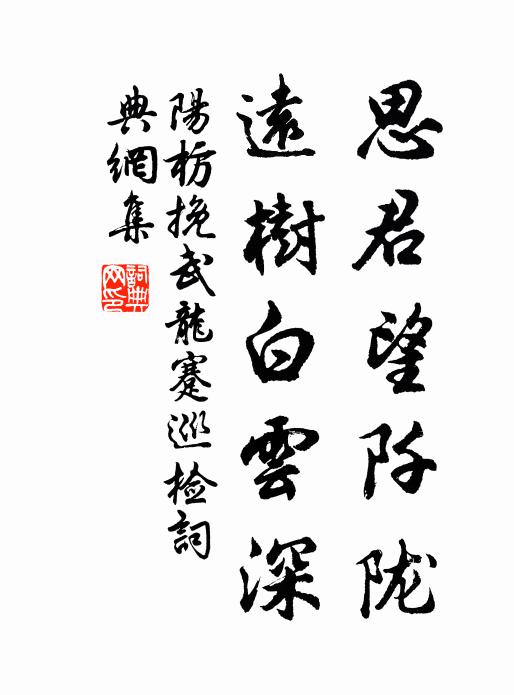 思君望阡陇
遠樹白雲深
陽枋挽武龍蹇巡檢詞
典網集
詞典網印